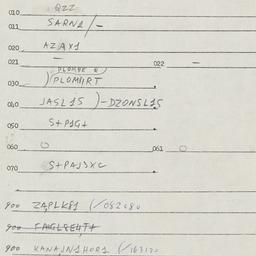 010 QZZ
011 SARN1/-
020 AZAY1
021 - 022 -
030 )PLOMIRT
040 JASL15 )-DZONSL15
050 S+P1G+
060 O 061 O
070 S+PAJ3XC
900 ZAPLK81 (/082680
900
900 KANAJN1HOR1 (/163170